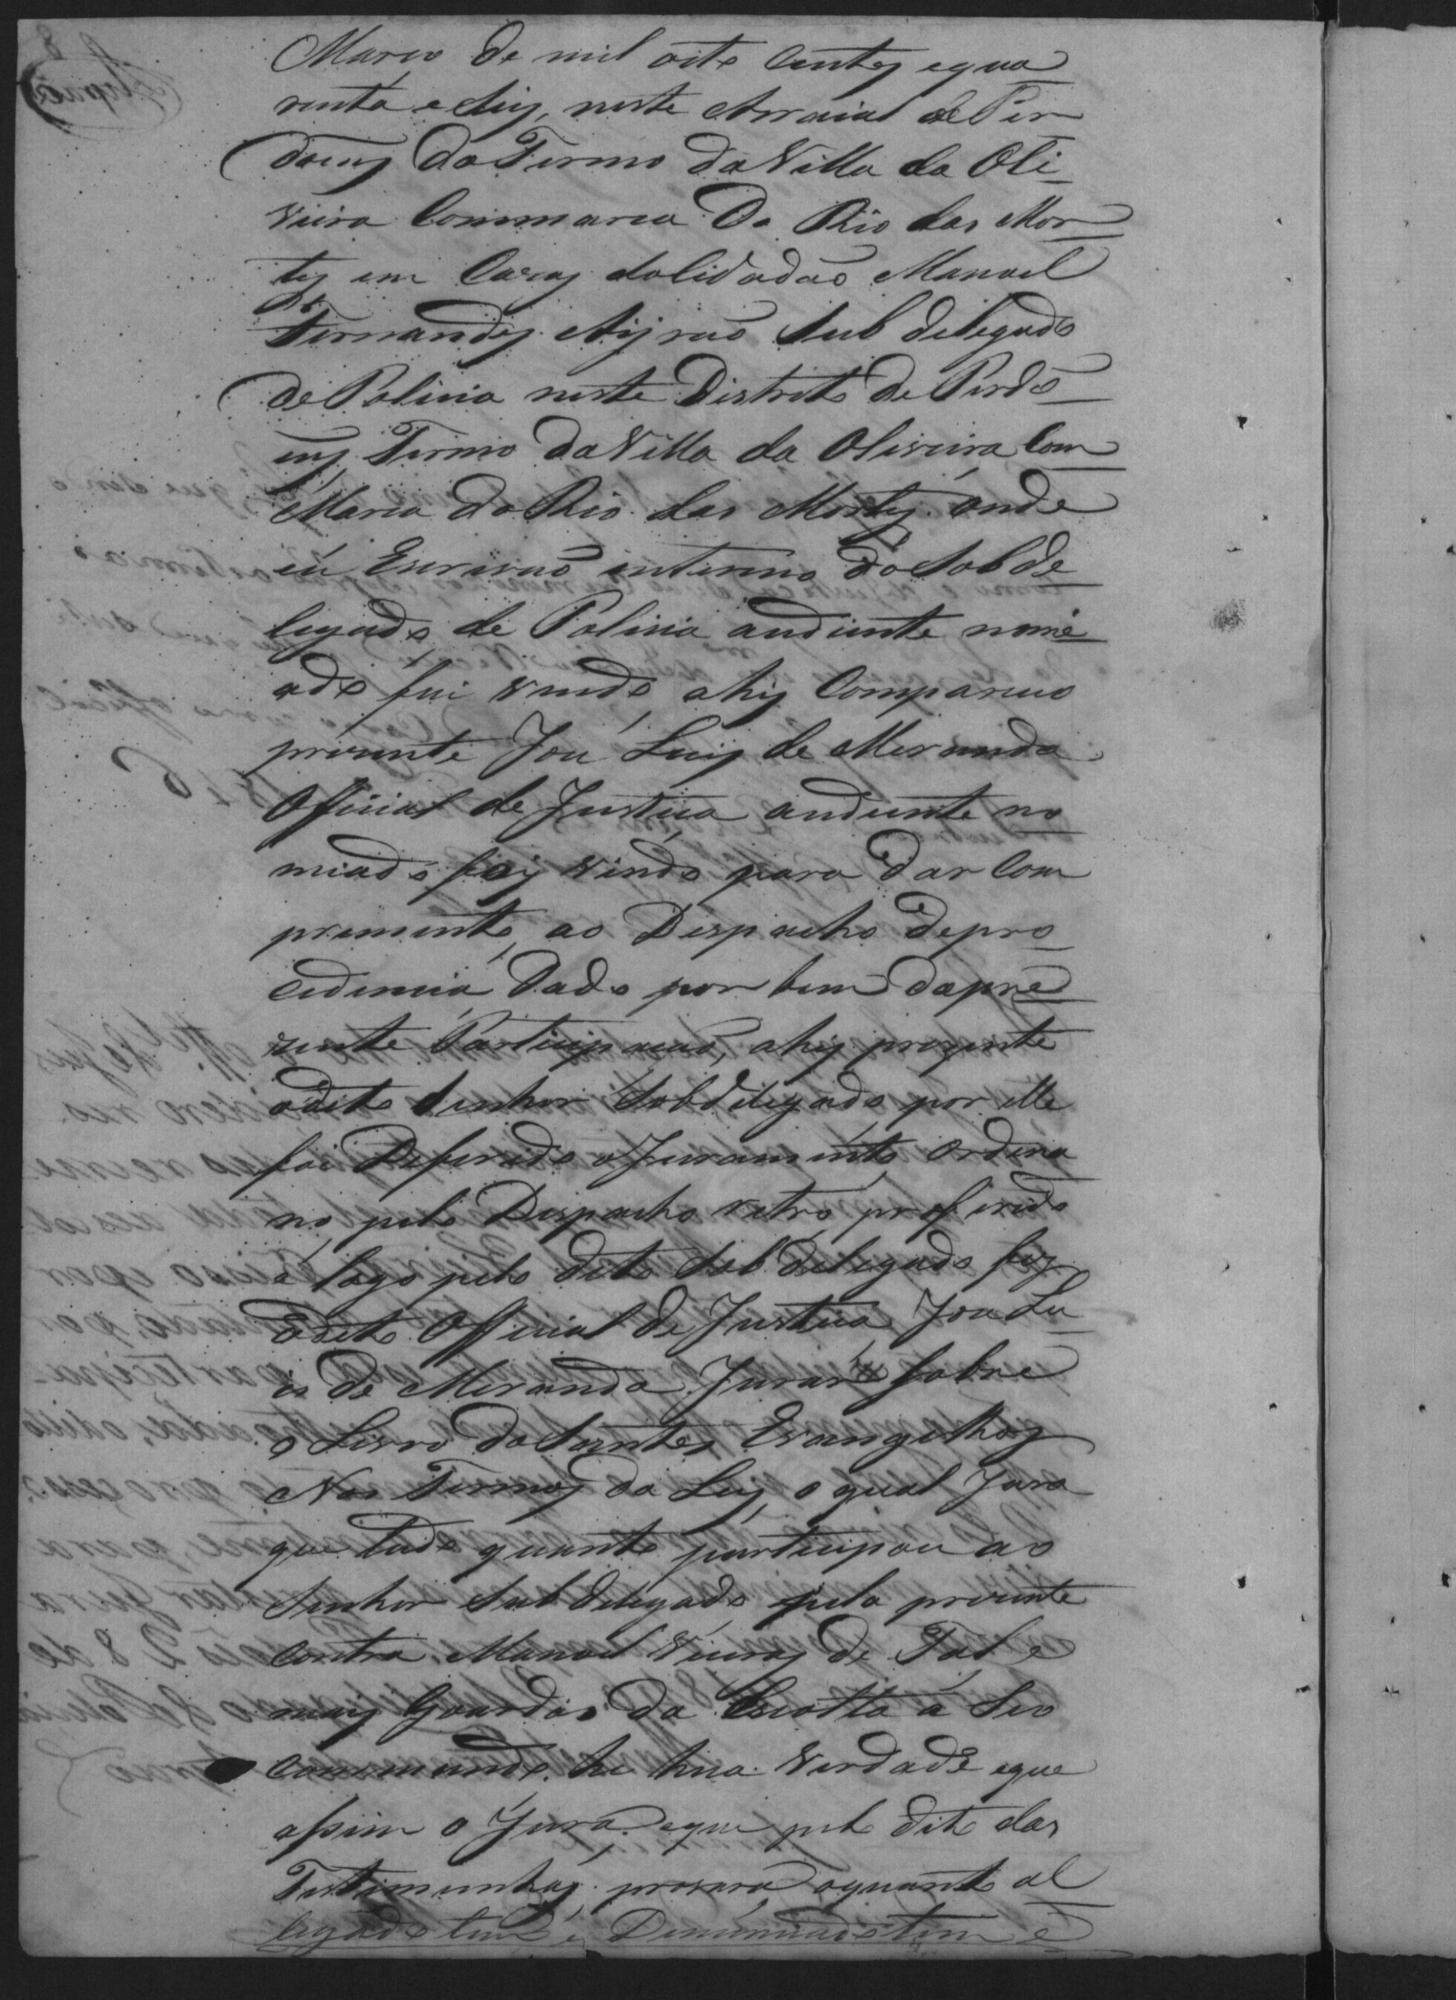 Março de mil oito centos e qua
renta e diz, neste Arraial de Per
doens do Termo da Villa da Oli
veira Commarca do Rio das Mor
tes em Cazas do Cidadão Manoel
Fernandes Ayrão Sub delegado
de Policia neste Districto de Perdo
ens Termo da Villa da Oliveira Com
Marca do Rio das Mortes onde
eu Escrivão interino do Sob de
legado de Policia andiente nome
ado fui vindo, ahy Compareceo
prezente José Luiz de Meranda
Official de Justiça andiente no
miado foi vindo para dar Com
primento, ao Despacho de pro
cedencia dado por bem da pre
zente Participação, ahy prezente
o dito Senhor Sobdelegado por elle
foi Deferido o Juramento ordena
no pelo Despacho retro proferido
e logo pelo dito Sobdelegado foy
Edito Official de Justiça José Lu
is de Meranda Jurar sobre
o Livro do Santos Evangelhos
Nos Termos da Ley o qual Jura
que tudo quanto participou ao
Senhor Subdelegado pela prezente
contra Manoel Vieira de Tal e
mais Goardas da Escolta á Seo
commando. he hua verdade e que
assim o Jura, e que pelo dito das
Testimunhas provará o quanto al
legado tem, e Denunciado tem e